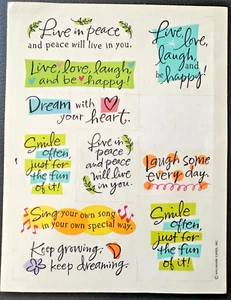 Live in peace
and peace will live in you.
Live, love,
laugh,
and be
happy!
Live, love, laugh,
and be happy!
Dream with
your heart.
Smile
often,
just for
the fun
of it!
Live in
peace
and peace
will live
in you.
laugh some
every day.
Sing your own song
in your own special way.
Smile
often,
just for
the fun
of it!
Keep growing,
keep dreaming.
© HALLMARK CARDS, INC.